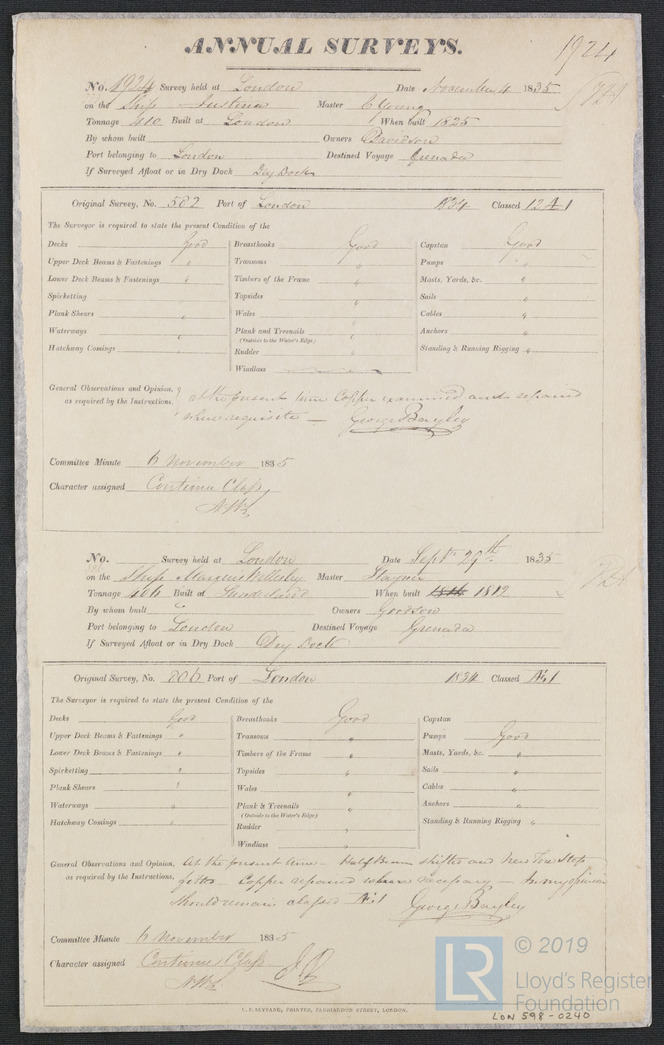 ANNUAL SURVEYS.
1924
No. 1924 Survey held at London Date November 4 1835
on the Ship Justina Master C Young
Tonnage 410 Built at London When built 1825
By whom built Owners Davidson
Port belonging to London Destined Voyage Grenada
If Surveyed Afloat or in Dry Dock Dry Dock
Original Survey, No. 502 Port of London 1834 Classed 12 A 1
The Surveyor is required to state the present Condition of the
Decks Good Breasthooks Good Capstan Good
Upper Deck Beams & Fastenings " Transoms " Pumps "
Lower Deck Beams & Fastenings " Timbers of the Frame " Masts, Yards, &c. "
Spirketting Topsides " Sails "
Plank Shears " Wales " Cables "
Waterways " Plank and Treenails " Anchors "
(Outside to the Water's Edge)
Hatchway Comings Rudder " Standing & Running Rigging "
Windlass
General Observations and Opinion, at the present time Copper examined and repaired
as required by the Instructions, where requisite — George Bayley
Committee Minute 6 November 1835
Character assigned Continue Class
No. Survey held at London Date Septr 29th 1835
on the Ship Marquis Wellesley Master Stayner
Tonnage 406 Built at Sunderland When built 1812
By whom built Owners Goodson
Port belonging to London Destined Voyage Grenada
If Surveyed Afloat or in Dry Dock Dry Dock
Original Survey, No. 806 Port of London 1834 Classed Æ 1
The Surveyor is required to state the present Condition of the
Decks Good Breasthooks Good Capstan
Upper Deck Beams & Fastenings " Transoms " Pumps Good
Lower Deck Beams & Fastenings " Timbers of the Frame " Masts, Yards, &c. "
Spirketting " Topsides " Sails "
Plank Shears " Wales " Cables "
Waterways " Plank & Treenails " Anchors "
(Outside to the Water's Edge)
Hatchway Comings " Rudder " Standing & Running Rigging "
Windlass "
General Observations and Opinion, At the present time — Half Beam shifted and New
as required by the Instructions, Copper repaired where necessary — In my opinion
Should remain classed Æ 1 George Bayley
Committee Minute 6 November 1835
Character assigned Continue Class
C. F. SEYFANG, PRINTER, FARRINGDON STREET, LONDON.
LR © 2019
Lloyd's Register
Foundation
LON 598-0240